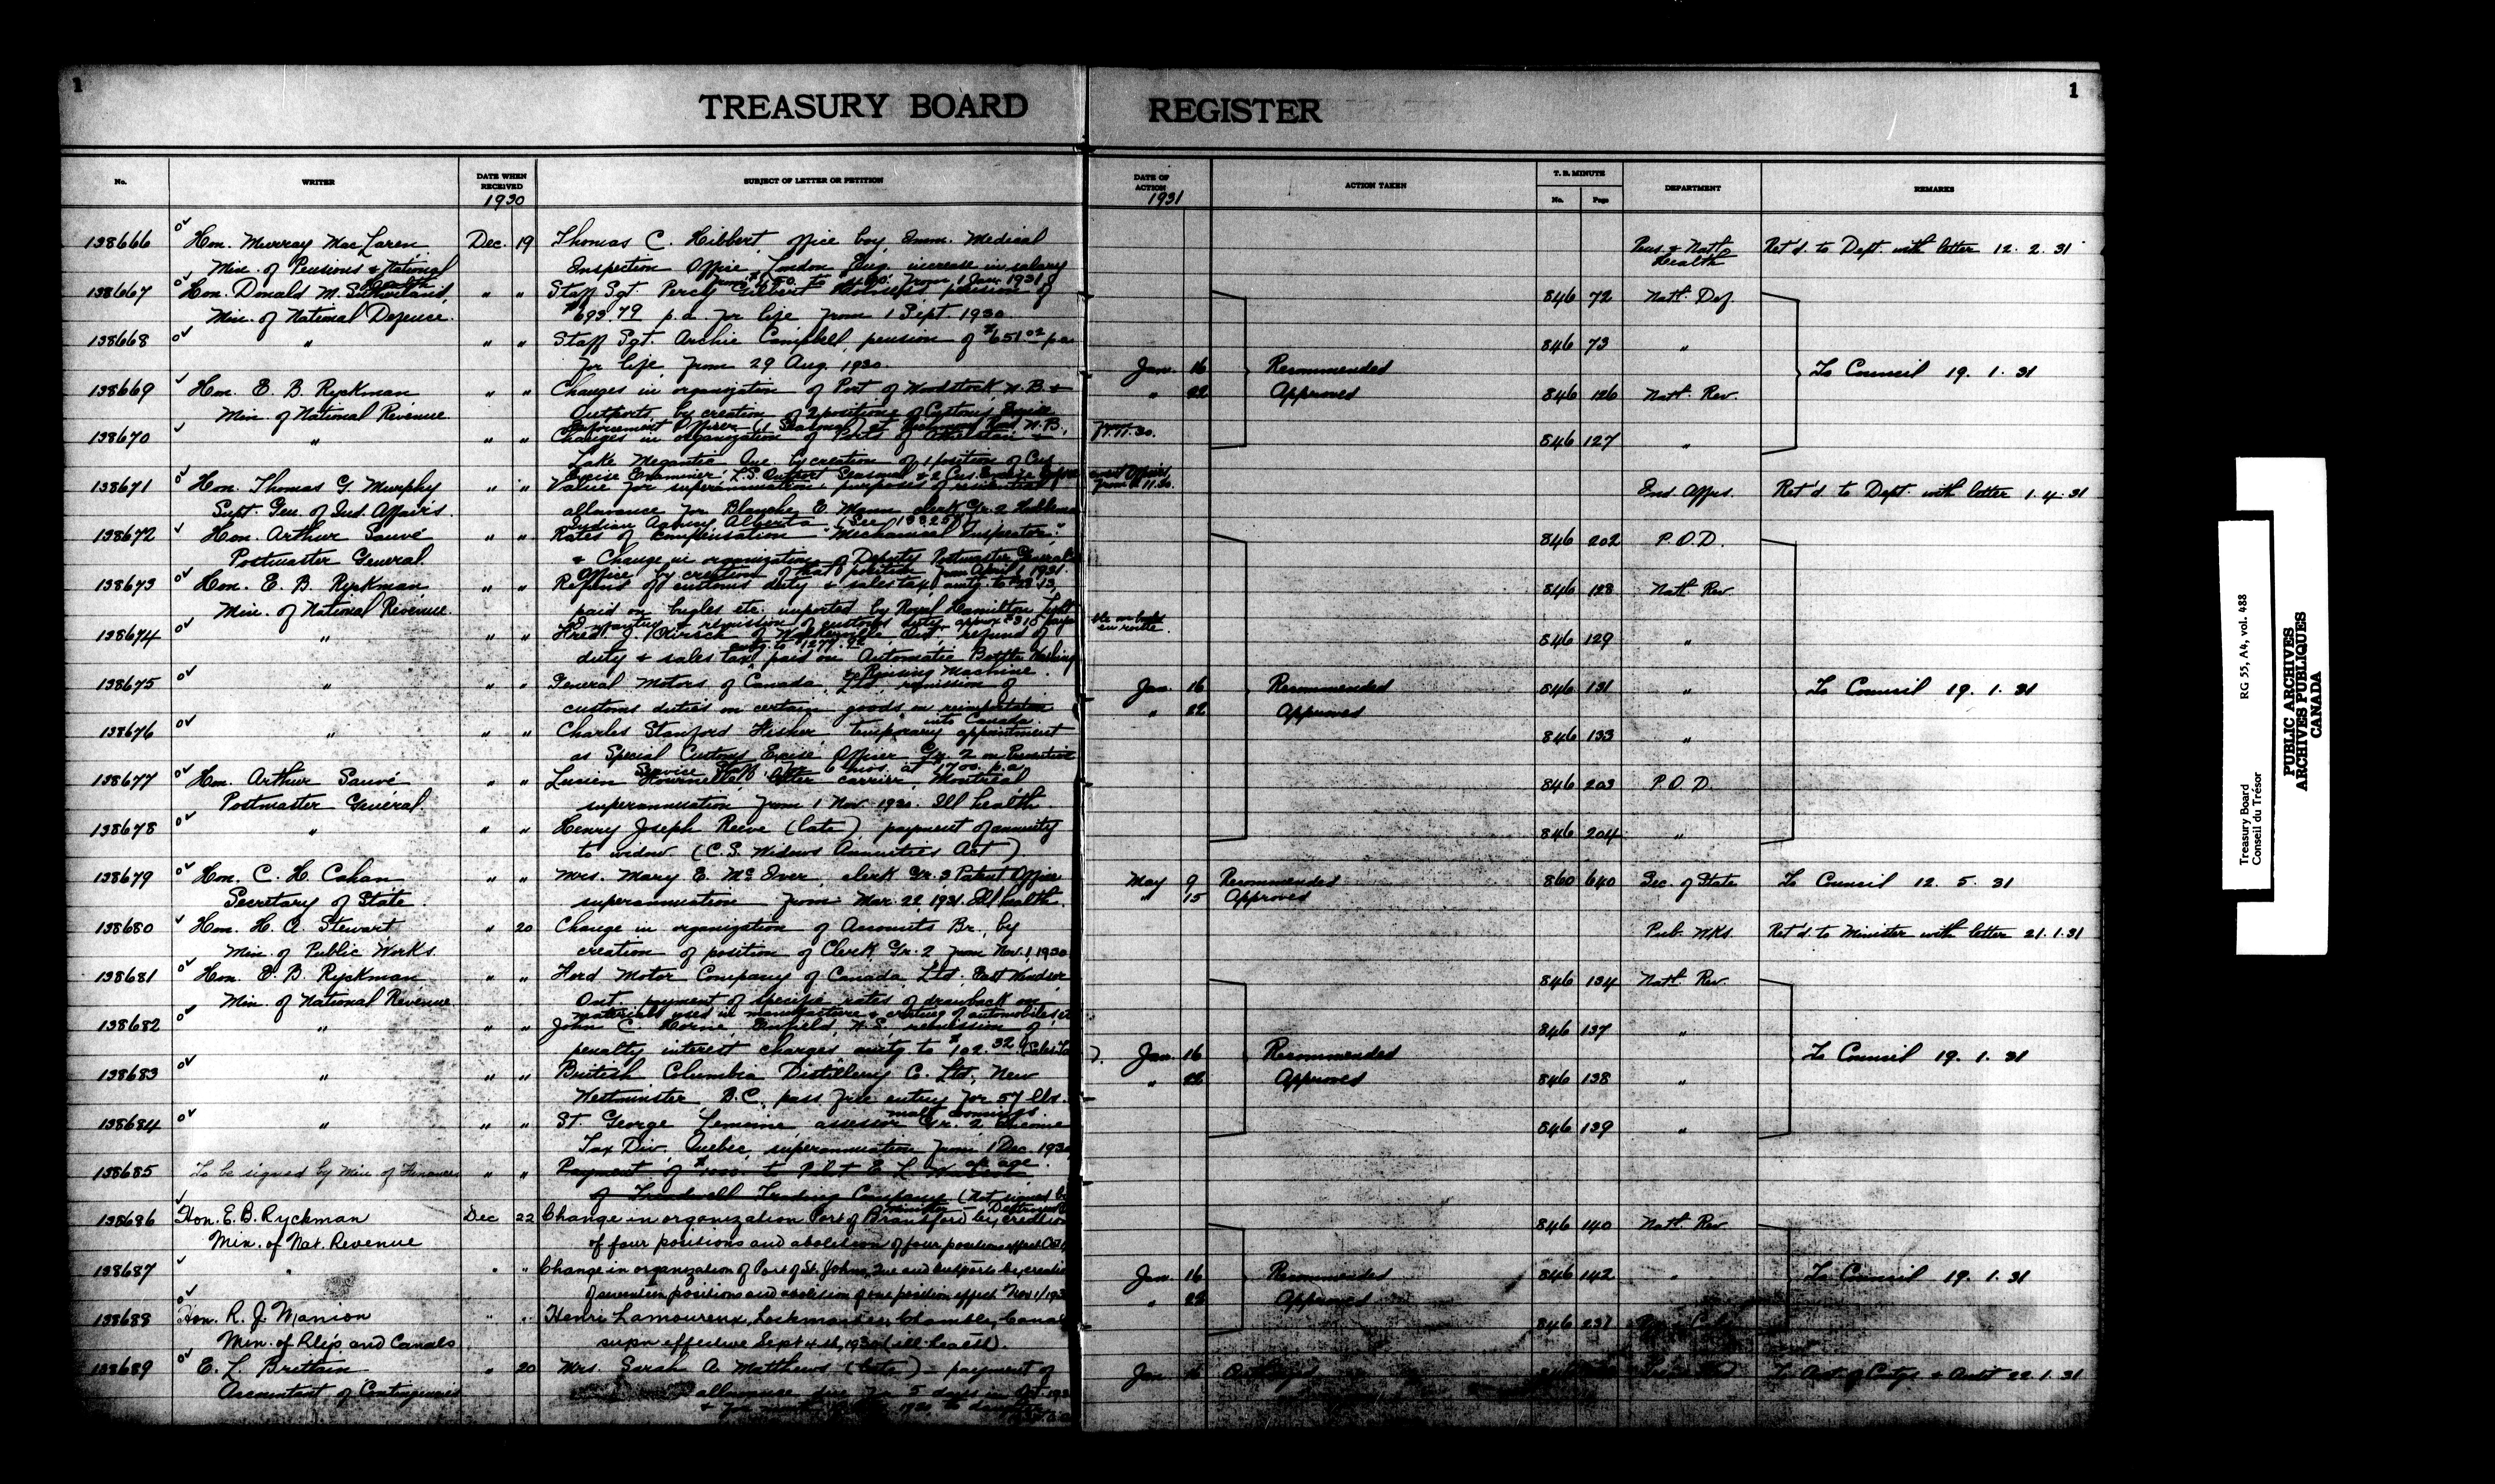 1
TREASURY BOARD REGISTER
1
No. WRITER DATE WHEN RECEIVED SUBJECT OF LETTER OR PETITION DATE OF ACTION ACTION TAKEN T. B. MINUTE DEPARTMENT REMARKS
1930 1931 No. Page
138666 Hon. Murray MacLaren Dec. 19 Thomas C. Hibbert, office boy, Imm. Medical Pens. & Natl. Health Ret'd. to Dept. with letter 12. 2. 31
Min. of Pensions & National Health Inspection Office, London Eng. increase in salary
from to from 1 Jan. 1931
138667 Hon. Donald M. Sutherland, " " Staff Sgt. Percy Gilbert pension of 846 72 Natl. Def.
Min. of National Defence. $693.79 p.a. for life from 1 Sept 1930.
138668 " " " Staff Sgt. Archie Campbell, pension of $651.02 p.a. 846 73 "
for life from 29 Aug. 1930. Jan. 16 Recommended To Council 19. 1. 31
138669 Hon. E. B. Ryckman " " Changes in organization of Port of Woodstock, N.B. & " 22 Approved 846 126 Natl. Rev.
Min. of National Revenue. Outports by creation of 2 positions of Customs Excise
Enforcement Officer (1 Seasonal) at Richmond Road N.B.,
138670 " " " Changes in organization of Ports of Athelstan & 846 127 "
Lake Megantic Que. by creation of 1 position of Cus.
Excise Examiner L.S. Outport Seasonal & 2 Cus. Excise
138671 Hon. Thomas G. Murphy " " Value for superannuation purposes of residential Ind. Affrs. Ret'd to Dept. with letter 1. 4. 31
Supt. Gen. of Ind. Affairs. allowance for Blanche E. Mann clerk Gr. 2 Hobbema
Indian Agency, Alberta (See
138672 Hon. Arthur Sauvé " " Rates of compensation "Mechanical Inspector" 846 202 P.O.D.
Postmaster General. & Change in organization of Deputy Postmaster General's
Office by creation of that position from April 1 1931.
138673 Hon. E. B. Ryckman " " Refund of customs duty & sales tax amtg. to 846 128 Natl. Rev.
Min. of National Revenue. paid on bugles etc. imported by Royal Hamilton Light
Infantry & remission of customs duty approx.
138674 " " " Fred. J. of Walkerville, Ont., refund of 846 129 "
amtg. to
duty & sales tax paid on Automatic Bottle Washing
& Rinsing Machine.
138675 " " " General Motors of Canada, Ltd. remission of Jan. 16 Recommended 846 131 " To Council 19. 1. 31
customs duties on certain goods on reimportation into Canada. " 22 Approved
138676 " " " Charles Stanford Fisher temporary appointment 846 133 "
as Special Customs Excise Officer Gr. 2 on Preventive
Service Staff for 6 mos. at 1700. p.a.
138677 Hon. Arthur Sauvé " " Lucien letter carrier, Montreal 846 203 P.O.D.
Postmaster General. superannuation from 1 Nov. 1930. Ill health.
138678 " " " Henry Joseph Reeve (late), payment of annuity 846 204 "
to widow (C.S. Widows Annuities Act)
138679 Hon. C. H. Cahan " " Mrs. Mary E. McIver clerk Gr. 3 Patent Office May 9 Recommended 860 640 Sec. of State To Council 12. 5. 31
Secretary of State. superannuation from Mar. 22 1931. Ill health. " 15 Approved
138680 Hon. H. A. Stewart " 20 Change in organization of Accounts Br., by Pub. Wks. Ret'd. to Minister with letter 21. 1. 31
Min. of Public Works. creation of position of Clerk, Gr. 2 from Nov. 1, 1930
138681 Hon. E. B. Ryckman " " Ford Motor Company of Canada, Ltd. East Windsor 846 134 Natl. Rev.
Min. of National Revenue Ont. payment of specific rates of drawback on
materials used in manufacture & crating of automobiles etc
138682 " " " John C. Horne, Enfield, N.S. remission of 846 137 "
penalty interest charges amtg. to $102.32 (Sales Tax). Jan. 16 Recommended To Council 19. 1. 31
138683 " " " British Columbia Distillery Co. Ltd., New " 22 Approved 846 138 "
Westminster B.C. pass free entry for 57 lbs. malt
138684 " " " St. George Lemoine assessor Gr. 2 Income 846 139 "
Tax Div. Quebec, superannuation from 1 Dec. 1930
of age.
138685 To be signed by Min. of Finance " " Payment of to Pilot E. L.
of Treadwell Trading Company (Not signed by
Minister - Destroyed)
138686 Hon. E. B. Ryckman Dec 22 Change in organization Port of Brantford by creation 846 140 Natl. Rev.
Min. of Nat. Revenue of four positions and abolition of four positions effect. Oct 1,
138687 " " " Change in organization of Port of St. Johns, Que and outports by creation Jan. 16 Recommended 846 142 " To Council 19. 1. 31
of seventeen positions and abolition of one position effect. Nov. 1/193 " 22 Approved
138688 Hon. R. J. Manion " " Henri Lamoureux, Lockmaster, Chambly Canal 846 237
Min. of Rlys. and Canals supn effective Sept 4th, 1930 (ill health).
138689 E. L. Brittain " 20 Mrs. Sarah A. Matthews (late) - payment of Jan 16 To Acct. of Contgs. & Audt 22. 1. 31
Accountant of Contingencies allowance due for 5 days in Oct. 193
Treasury Board RG 55, A4, vol. 488
Conseil du Trésor
PUBLIC ARCHIVES
ARCHIVES PUBLIQUES
CANADA